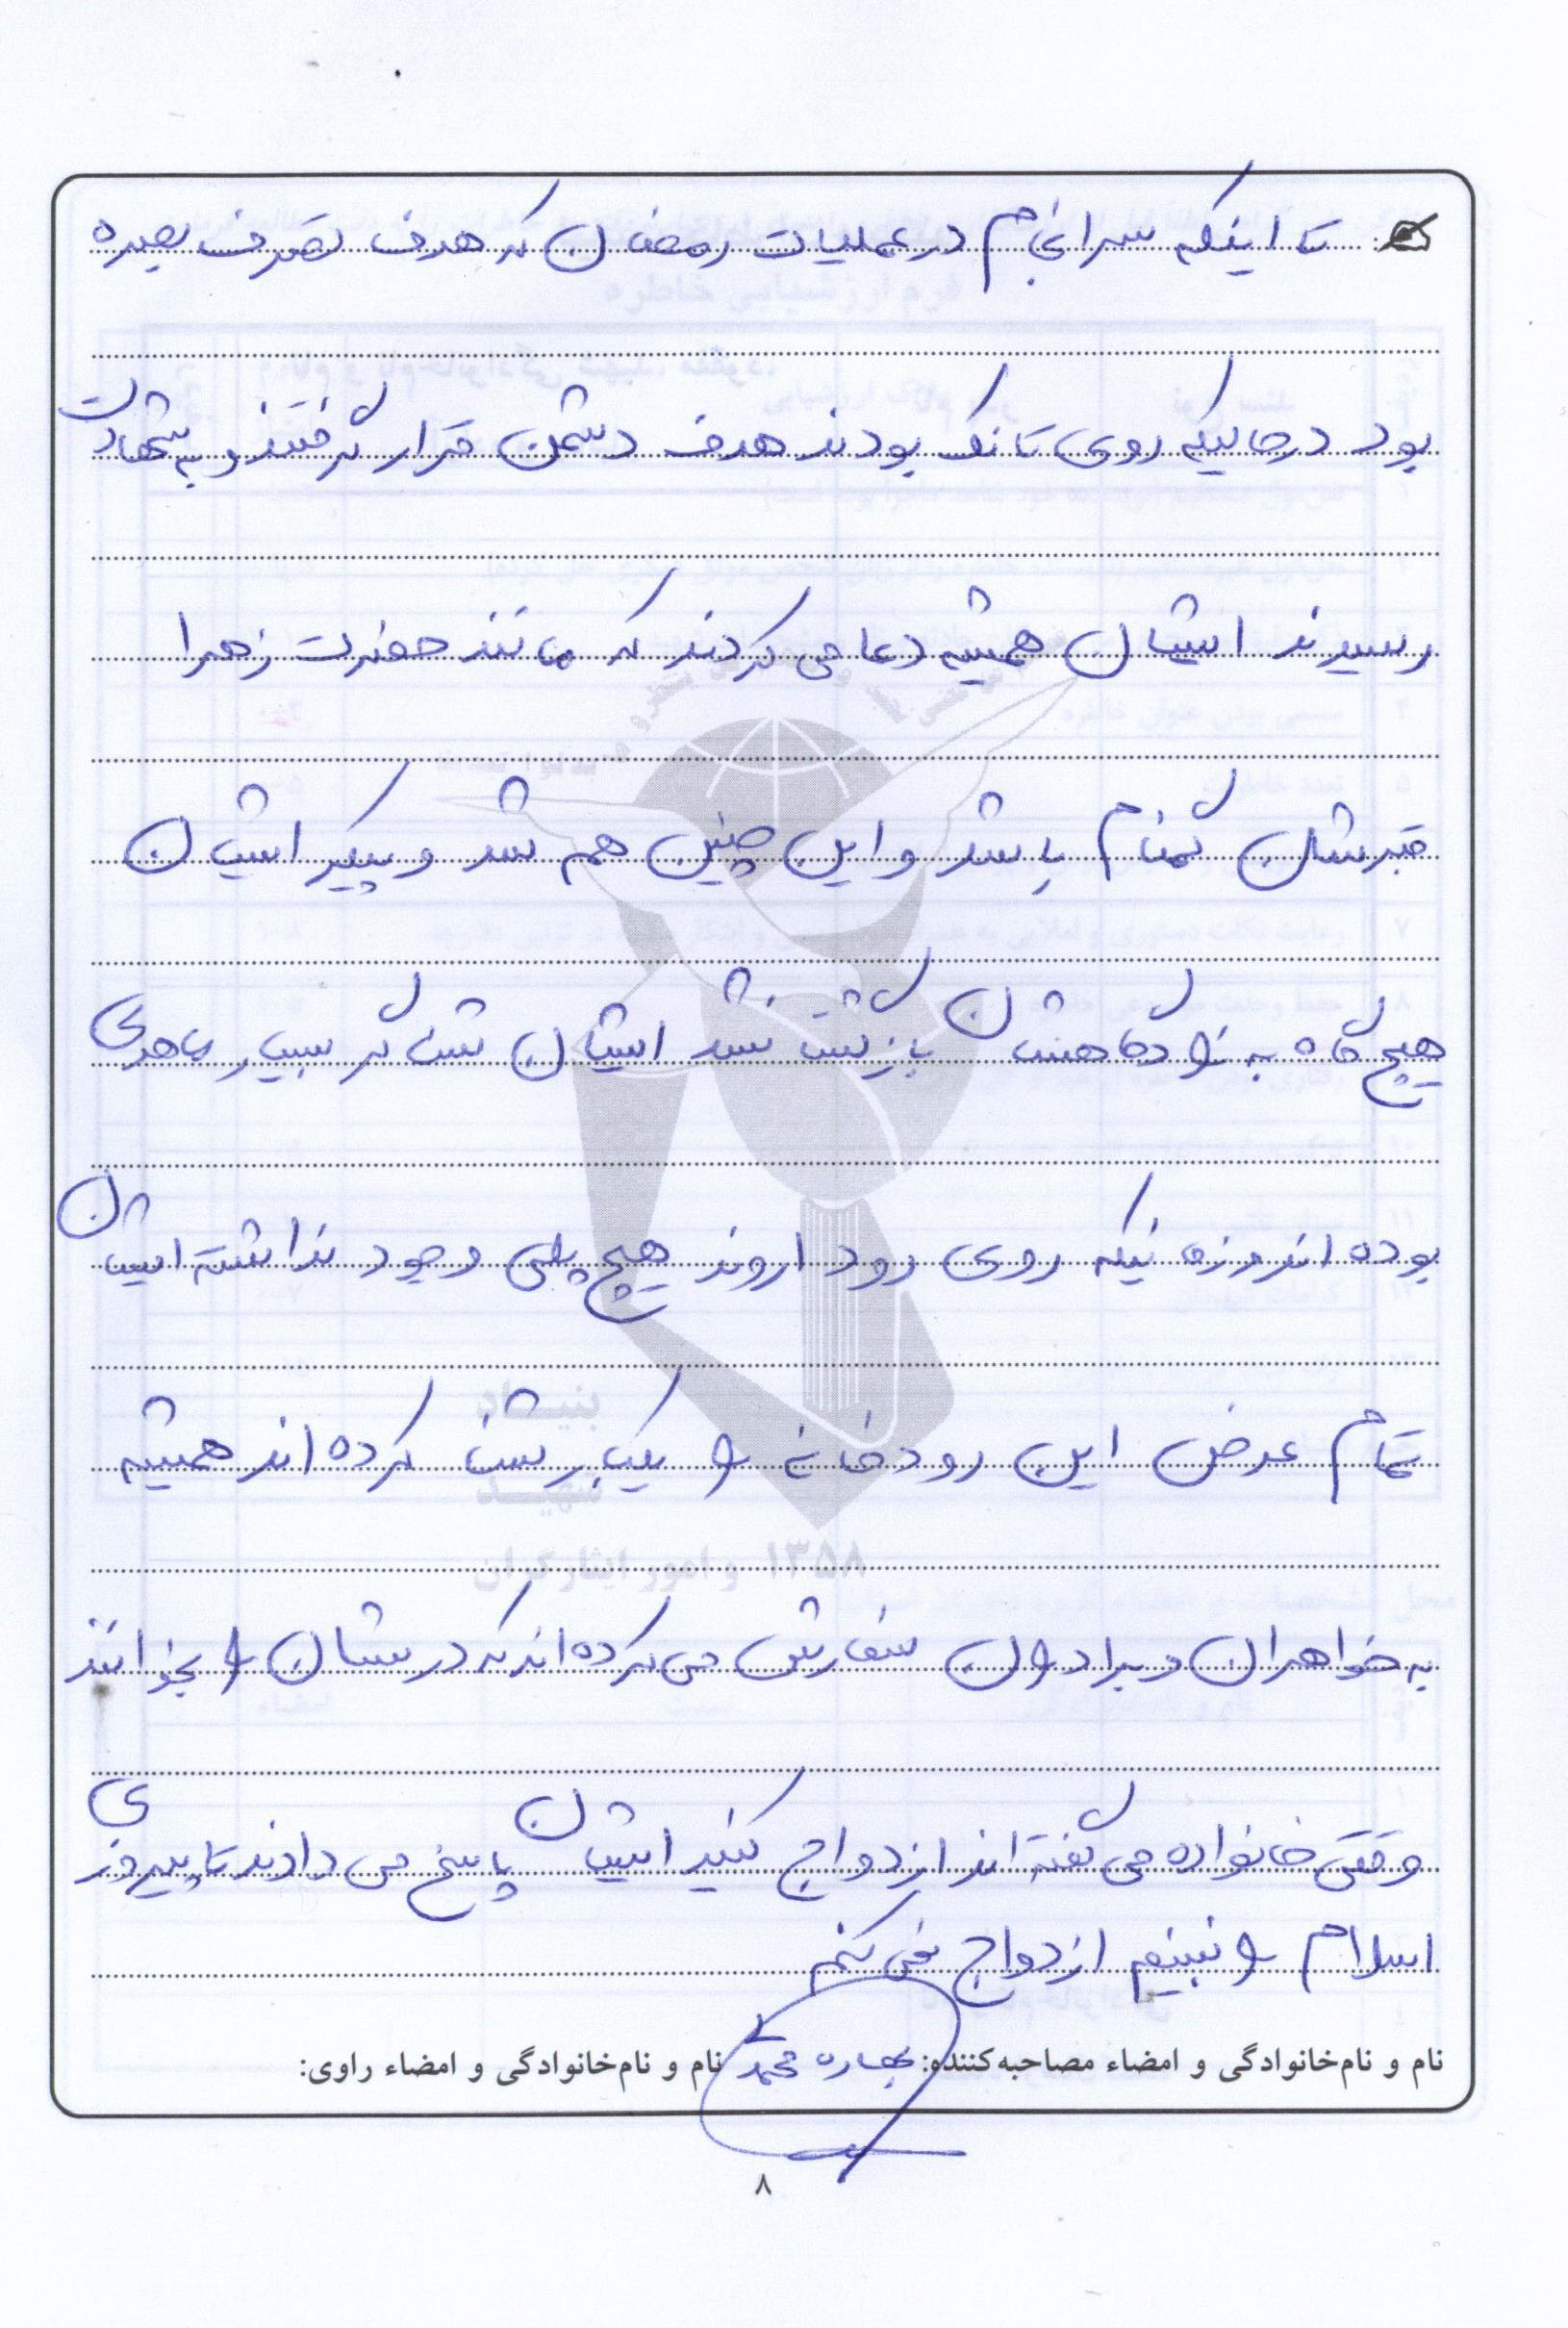 تا اینکه سرانجام در عملیات رمضان که هدف تصرف بصره
بود درحالیکه روی تانک بودند هدف دشمن قرار گرفتند و به شهادت
رسیدند ایشان همیشه دعا می کردند که مانند حضرت زهرا
قبرشان گمنام باشد و این چنین هم شد و پیکر ایشان
هیچ گاه به زادگاهشان بازگشت نشد ایشان شناگر بسیار ماهری
بوده اند و زمانیکه روی رود اروند هیچ پلی وجود نداشته ایشان
تمام عرض این رودخانه را یکبار شنا کرده اند همیشه
به خواهران و برادران سفارش می کرده اند که درسشان را بخوانند
وقتی خانواده می گفته اند ازدواج کنید ایشان پاسخ می دادند تا پیروزی
اسلام را نبینم ازدواج نمی کنم
نام و نام‌خانوادگی و امضاء مصاحبه‌کننده: بهاره محمدی نام و نام‌خانوادگی و امضاء راوی:
۸
بنیاد
شهید
و امور ایثارگران ۱۳۵۸